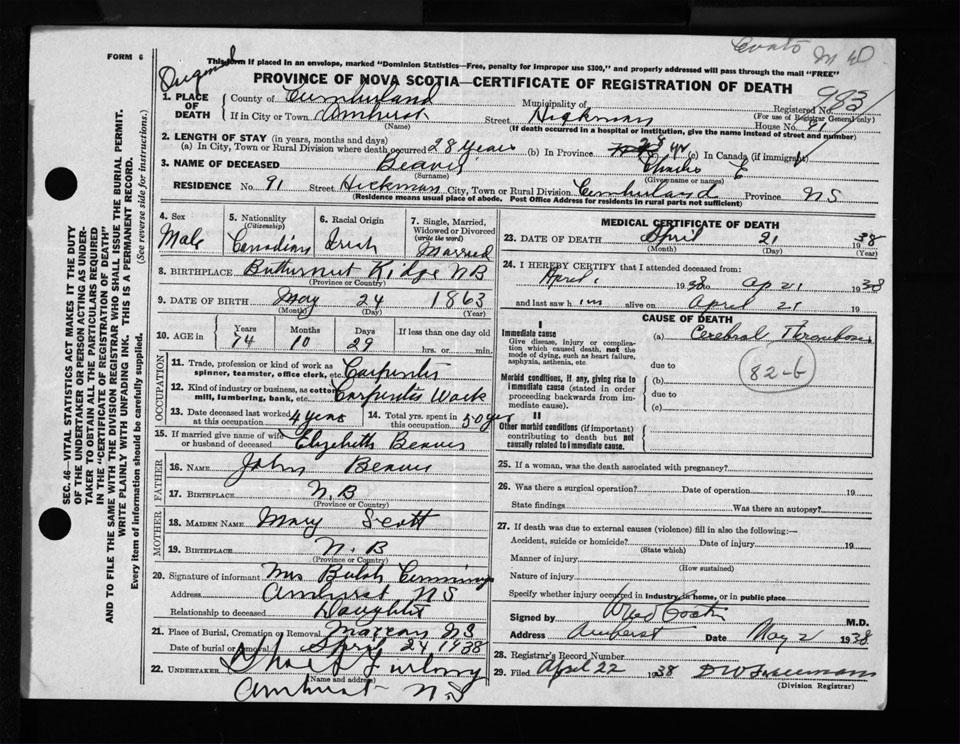 FORM 6
This form if placed in an envelope, marked "Dominion Statistics—Free, penalty for improper use $300," and properly addressed will pass through the mail "FREE"
PROVINCE OF NOVA SCOTIA—CERTIFICATE OF REGISTRATION OF DEATH
983
1. PLACE OF DEATH
County of Cumberland
Municipality of
Registered No.
(For use of Registrar General only)
If in City or Town Amherst Street Hickman House No. 91
(Name) (If death occurred in a hospital or institution, give the name instead of street and number)
2. LENGTH OF STAY (in years, months and days)
(a) In City, Town or Rural Division where death occurred 28 years (b) In Province (c) In Canada (if immigrant)
3. NAME OF DECEASED Beaver Charles E
(Surname) (Given name or names)
RESIDENCE No. 91 Street Hickman City, Town or Rural Division Cumberland Province NS
(Residence means usual place of abode. Post Office Address for residents in rural parts not sufficient)
4. Sex Male
5. Nationality (Citizenship) Canadian
6. Racial Origin Irish
7. Single, Married, Widowed or Divorced (write the word) Married
8. BIRTHPLACE Butternut Ridge NB
(Province or Country)
9. DATE OF BIRTH May 24 1863
(Month) (Day) (Year)
10. AGE in Years 74 Months 10 Days 29 If less than one day old hrs. or min.
OCCUPATION
11. Trade, profession or kind of work as spinner, teamster, office clerk, etc. Carpenter
12. Kind of industry or business, as cotton mill, lumbering, bank, etc. Carpenter Work
13. Date deceased last worked at this occupation 4 years
14. Total yrs. spent in this occupation 50 yrs
15. If married give name of wife or husband of deceased Elizabeth Beaver
FATHER
16. NAME John Beaver
17. BIRTHPLACE N.B
(Province or Country)
MOTHER
18. MAIDEN NAME Mary Scott
19. BIRTHPLACE N.B
(Province or Country)
20. Signature of informant Mrs Cummings
Address Amherst NS
Relationship to deceased Daughter
21. Place of Burial, Cremation or Removal NS
Date of burial or removal April 24 1938
22. UNDERTAKER
(Name and address)
Amherst NS
MEDICAL CERTIFICATE OF DEATH
23. DATE OF DEATH April 21 1938
(Month) (Day) (Year)
24. I HEREBY CERTIFY that I attended deceased from:
April 1938 to Ap 21 1938
and last saw him alive on April 21
CAUSE OF DEATH
I
Immediate cause
Give disease, injury or complication which caused death, not the mode of dying, such as heart failure, asphyxia, asthenia, etc.
(a) Cerebral Thrombosis
due to
82-b
Morbid conditions, if any, giving rise to immediate cause (stated in order proceeding backwards from immediate cause).
(b)
due to
(c)
II
Other morbid conditions (if important) contributing to death but not causally related to immediate cause.
25. If a woman, was the death associated with pregnancy?
26. Was there a surgical operation? Date of operation 19
State findings Was there an autopsy?
27. If death was due to external causes (violence) fill in also the following:—
Accident, suicide or homicide? Date of injury 19
(State which)
Manner of injury
(How sustained)
Nature of injury
Specify whether injury occurred in industry, in home, or in public place
Signed by M.D.
Address Amherst Date May 2 1938
28. Registrar's Record Number
29. Filed April 22 1938
(Division Registrar)
SEC. 46—VITAL STATISTICS ACT MAKES IT THE DUTY
OF THE UNDERTAKER OR PERSON ACTING AS UNDER-
TAKER TO OBTAIN ALL THE PARTICULARS REQUIRED
IN THE "CERTIFICATE OF REGISTRATION OF DEATH"
AND TO FILE THE SAME WITH THE DIVISION REGISTRAR WHO SHALL ISSUE THE BURIAL PERMIT.
WRITE PLAINLY WITH UNFADING INK. THIS IS A PERMANENT RECORD.
Every item of information should be carefully supplied. (See reverse side for instructions.)